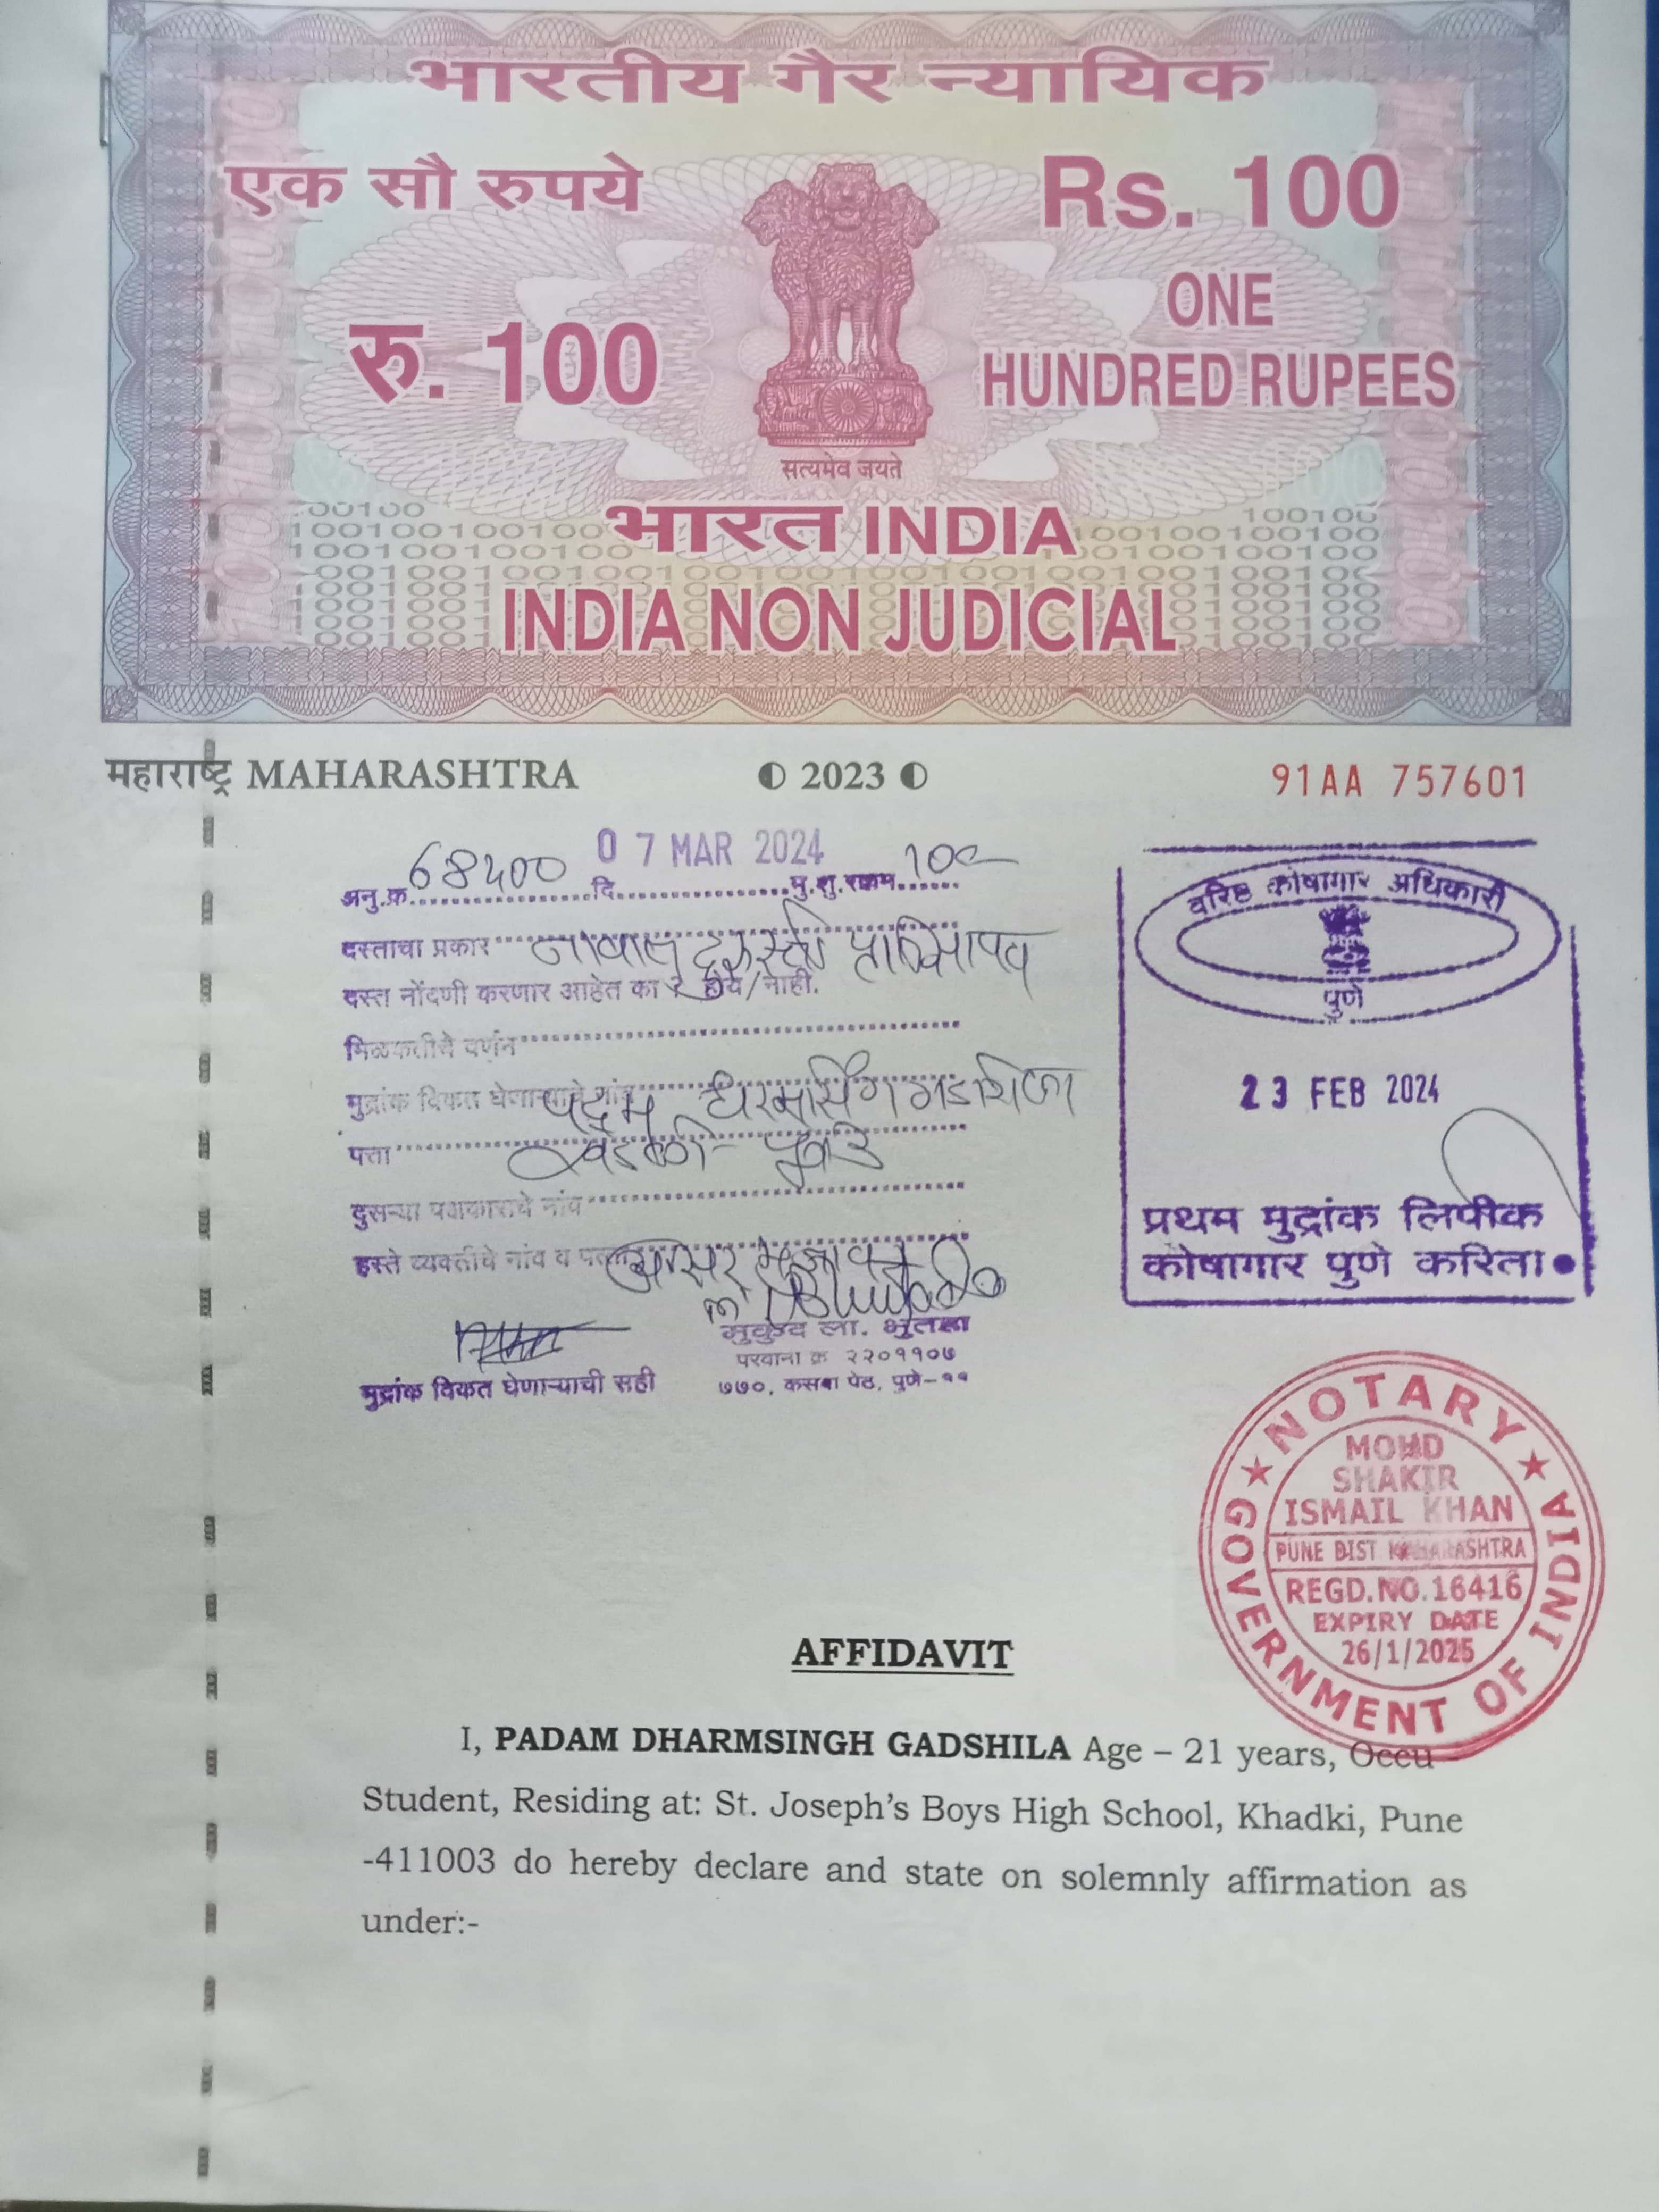 भारतीय गैर न्यायिक
एक सौ रुपये
Rs. 100
रु. 100
ONE
HUNDRED RUPEES
सत्यमेव जयते
भारत INDIA
INDIA NON JUDICIAL
महाराष्ट्र MAHARASHTRA
2023
91AA 757601
अनु.क्र. 68400 दि. 07 MAR 2024 मु.शु.रक्कम 100
दस्ताचा प्रकार
दस्त नोंदणी करणार आहेत का ? होय/नाही.
मिळकतीचे वर्णन
मुद्रांक विकत घेणाऱ्याचे नांव पदम धरमसिंग गडशिला
पत्ता खडकी-पुणे 3
दुसऱ्या पक्षकाराचे नांव
हस्ते व्यक्तीचे नांव व पत्ता
मुकुंद ला. भुतडा
परवाना क्र २२०११०७
७७०, कसबा पेठ, पुणे-११
मुद्रांक विकत घेणाऱ्याची सही
वरिष्ठ कोषागार अधिकारी
पुणे
23 FEB 2024
प्रथम मुद्रांक लिपीक
कोषागार पुणे करिता
NOTARY
GOVERNMENT OF INDIA
MOHD
SHAKIR
ISMAIL KHAN
PUNE DIST MAHARASHTRA
REGD.NO.16416
EXPIRY DATE
26/1/2025
AFFIDAVIT
I, PADAM DHARMSINGH GADSHILA Age – 21 years, Occu –
Student, Residing at: St. Joseph's Boys High School, Khadki, Pune
-411003 do hereby declare and state on solemnly affirmation as
under:-